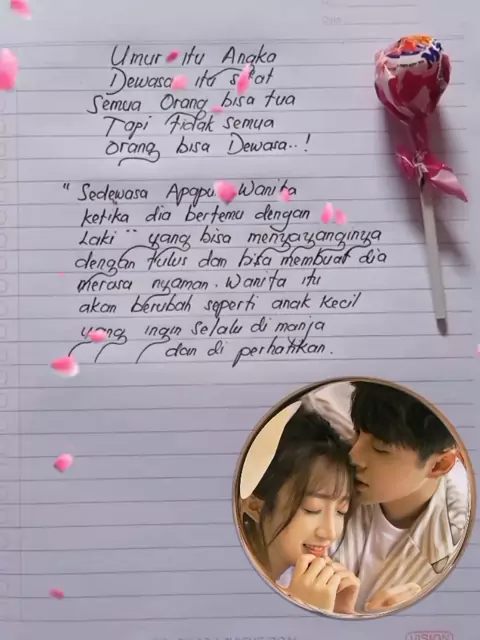 Umur itu Angka
Dewasa itu sifat
Semua Orang bisa tua
Tapi tidak semua
orang bisa Dewasa..!
"Sedewasa Apapun Wanita
ketika dia bertemu dengan
Laki" yang bisa menyayanginya
dengan tulus dan bisa membuat dia
merasa nyaman. Wanita itu
akan berubah seperti anak kecil
yang ingin selalu di manja
dan di perhatikan.
VISION